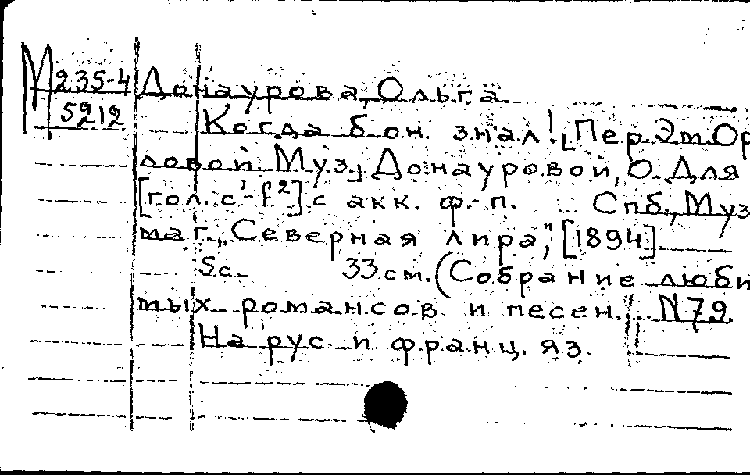 М 235-4 Донаурова, Ольга
5212
Когда б он знал! [Пер. Эм. Ор
ловой Муз.] Донауровой, О. Для
[гол. c¹-f²] с акк. ф.-п. Спб., Муз
маг. „Северная лира", [1894].
5с. 33 см. (Собрание люби
мых романсов и песен. N 79
На рус и франц. яз.